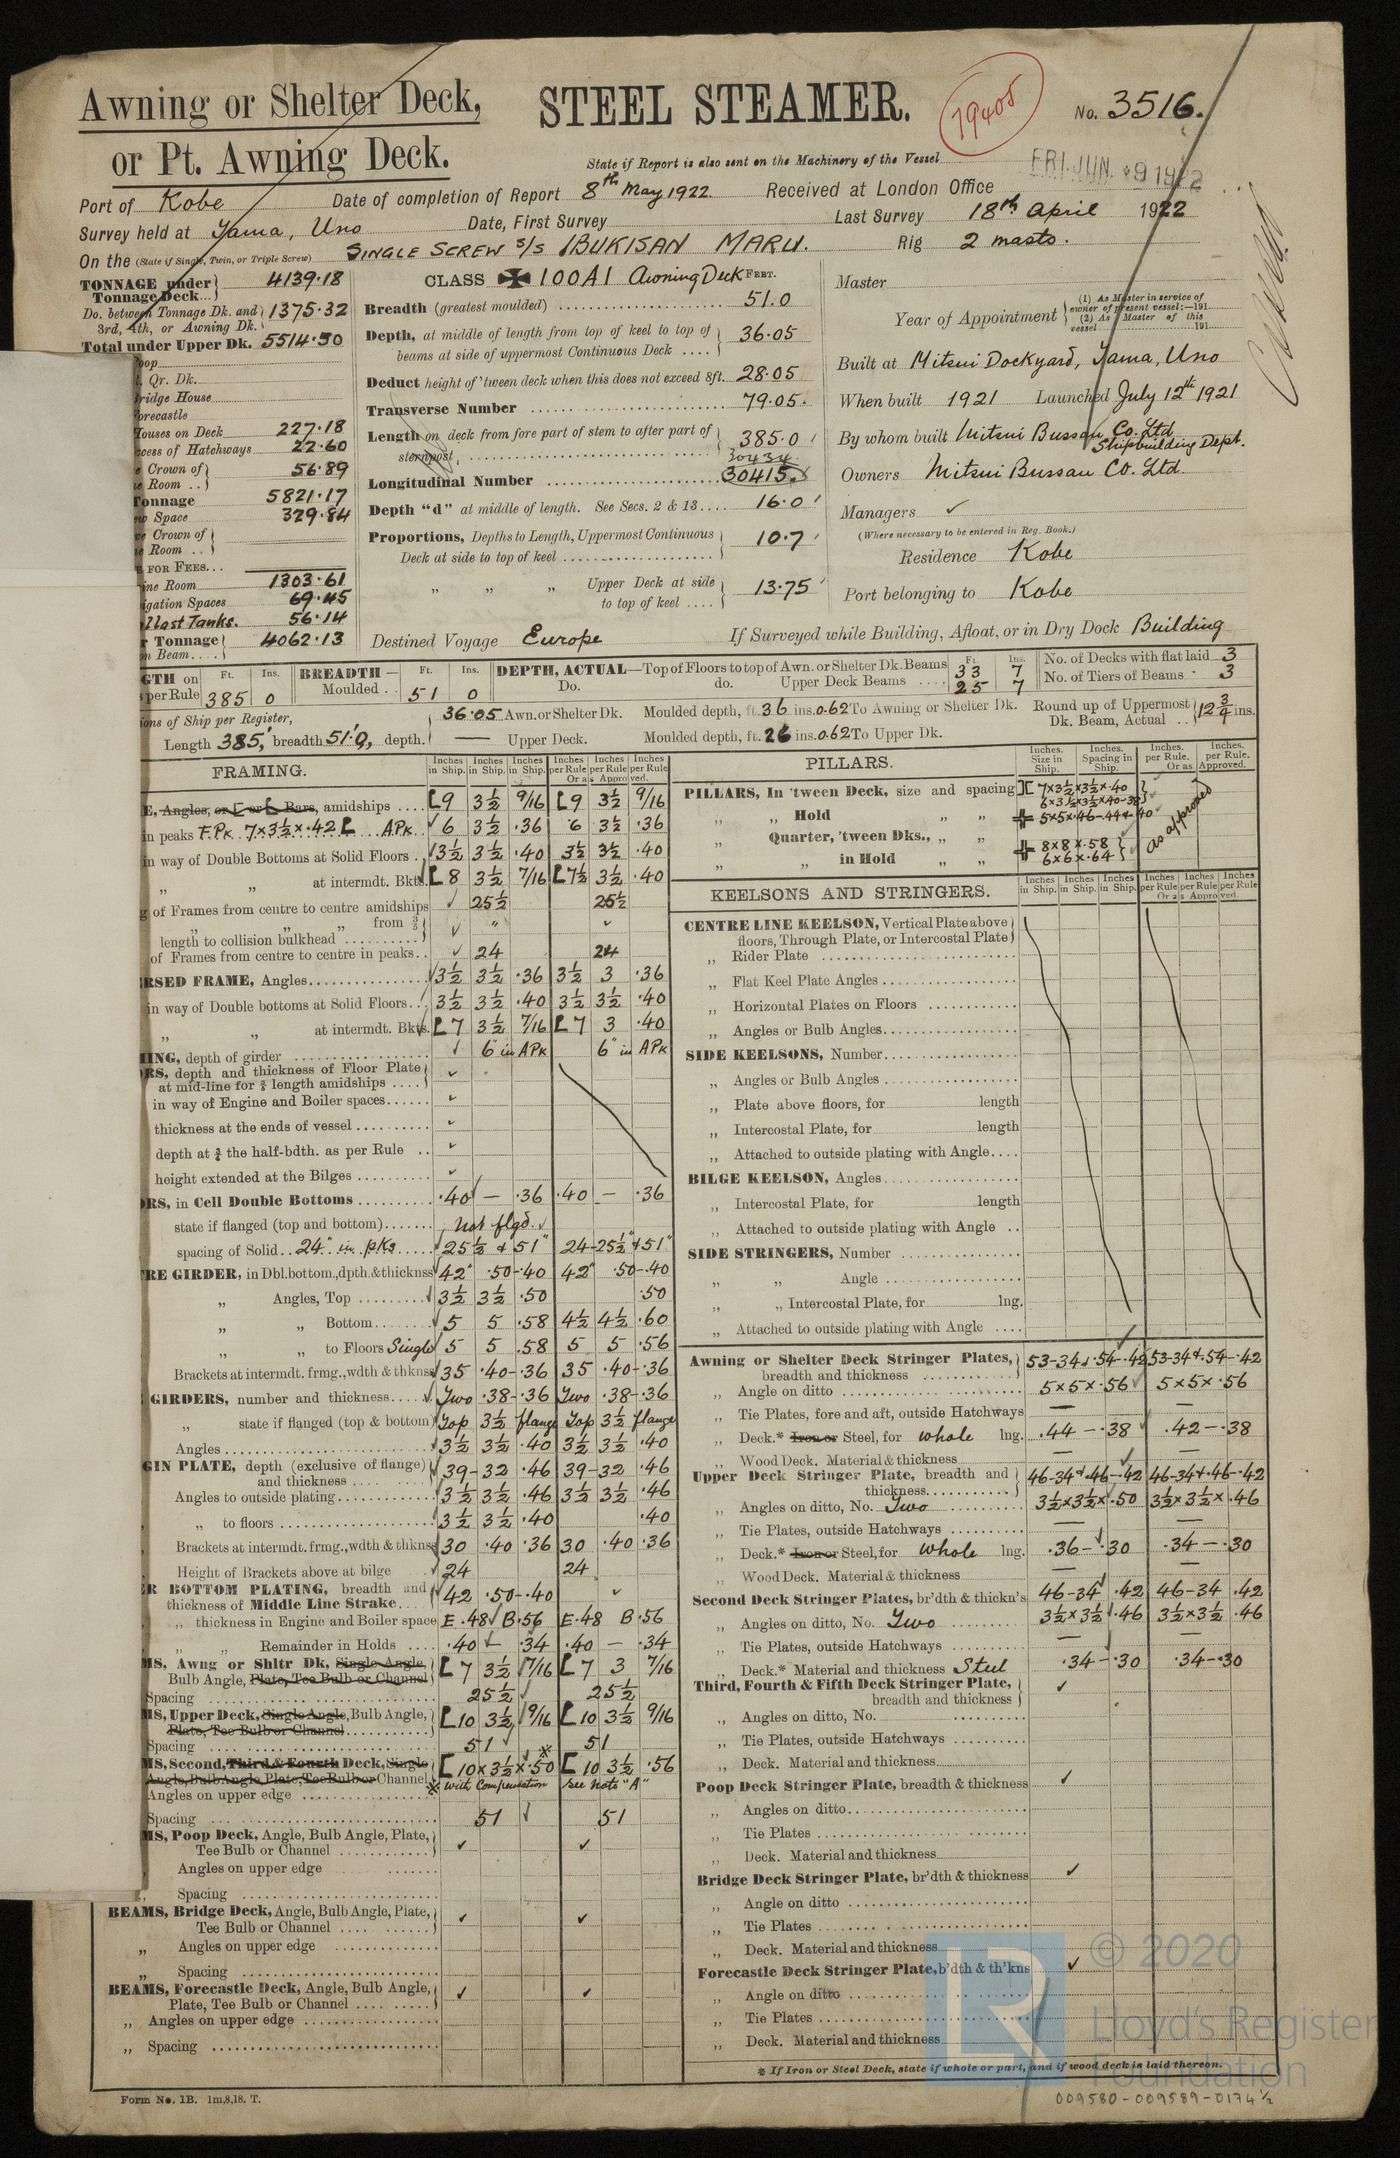 Awning or Shelter Deck,
or Pt. Awning Deck.
STEEL STEAMER.
79405
No. 3516.
State if Report is also sent on the Machinery of the Vessel
FRI. JUN. 9 1922
Port of Kobe Date of completion of Report 8th May 1922. Received at London Office
Survey held at Tama, Uno Date, First Survey Last Survey 18th April 1922
On the (State if Single, Twin, or Triple Screw) SINGLE SCREW S/S IBUKISAN MARU. Rig 2 masts.
TONNAGE under Tonnage Deck... 4139.18
Do. between Tonnage Dk. and 3rd, 4th, or Awning Dk. 1375.32
Total under Upper Dk. 5514.50
Qr. Dk.
ridge House
orecastle
Houses on Deck 227.18
cess of Hatchways 22.60
e Crown of
e Room .. 56.89
Tonnage 5821.17
w Space 329.84
e Crown of
e Room ..
FOR FEES...
ine Room 1303.61
igation Spaces 69.45
llast Tanks. 56.14
r Tonnage
n Beam.... 4062.13
CLASS ✠ 100A1 Awning Deck FEET.
Breadth (greatest moulded) 51.0
Depth, at middle of length from top of keel to top of beams at side of uppermost Continuous Deck .... 36.05
Deduct height of 'tween deck when this does not exceed 8ft. 28.05
Transverse Number 79.05.
Length on deck from fore part of stem to after part of sternpost, 385.0
30434
Longitudinal Number 30415.
Depth "d" at middle of length. See Secs. 2 & 13.... 16.0
Proportions, Depths to Length, Uppermost Continuous Deck at side to top of keel 10.7
,, ,, ,, Upper Deck at side to top of keel .... 13.75
Destined Voyage Europe
If Surveyed while Building, Afloat, or in Dry Dock Building
Master
Year of Appointment (1) As Master in service of owner of present vessel:—191
(2) As Master of this vessel 191
Built at Mitsui Dockyard, Tama, Uno
When built 1921 Launched July 12th 1921
By whom built Mitsui Bussan Co. Ltd Shipbuilding Dept.
Owners Mitsui Bussan Co. Ltd.
Managers ✓
(Where necessary to be entered in Reg. Book.)
Residence Kobe
Port belonging to Kobe
GTH on per Rule Ft. 385 Ins. 0 BREADTH— Moulded .. Ft. 51 Ins. 0
DEPTH, ACTUAL—Top of Floors to top of Awn. or Shelter Dk. Beams Ft. 33 Ins. 7
Do. do. Upper Deck Beams .... 25 7
No. of Decks with flat laid 3
No. of Tiers of Beams 3
ions of Ship per Register,
Length 385, breadth 51.0, depth.
36.05 Awn. or Shelter Dk. Moulded depth, ft. 36 ins. 0.62 To Awning or Shelter Dk.
— Upper Deck. Moulded depth, ft. 26 ins. 0.62 To Upper Dk.
Round up of Uppermost Dk. Beam, Actual .. 12 3/4 ins.
FRAMING.
Inches in Ship. Inches in Ship. Inches in Ship. Inches per Rule Inches per Rule Inches per Rule Or as Approved.
E, Angles, or [ or L Bars, amidships .... 9 3½ 9/16 9 3½ 9/16
in peaks F.Pk 7×3½×.42 A.Pk 6 3½ .36 6 3½ .36
in way of Double Bottoms at Solid Floors 3½ 3½ .40 3½ 3½ .40
,, ,, at intermdt. Bkts. 8 3½ 7/16 7½ 3½ .40
g of Frames from centre to centre amidships 25½ 25½
,, ,, ,, from 3/5 length to collision bulkhead
of Frames from centre to centre in peaks.. 24 24
RSED FRAME, Angles 3½ 3½ .36 3½ 3 .36
in way of Double bottoms at Solid Floors 3½ 3½ .40 3½ 3½ .40
,, at intermdt. Bkts. 7 3½ 7/16 7 3 .40
ING, depth of girder 6" in APk 6" in APk
RS, depth and thickness of Floor Plate at mid-line for ¾ length amidships ....
in way of Engine and Boiler spaces
thickness at the ends of vessel
depth at ¾ the half-bdth. as per Rule ..
height extended at the Bilges
RS, in Cell Double Bottoms .40 — .36 .40 — .36
state if flanged (top and bottom) Not flgd.
spacing of Solid.. 24" in pks 25½ & 51" 24-25½"&51"
RE GIRDER, in Dbl. bottom, dpth. & thicknss 42" .50-.40 42" .50-.40
,, Angles, Top 3½ 3½ .50 .50
,, ,, Bottom 5 5 .58 4½ 4½ .60
,, ,, to Floors Single 5 5 .58 5 5 .56
Brackets at intermdt. frmg., wdth & thknss 35 .40-.36 35 .40-.36
GIRDERS, number and thickness Two .38-.36 Two .38-.36
,, state if flanged (top & bottom) Top 3½ flange Top 3½ flange
Angles 3½ 3½ .40 3½ 3½ .40
GIN PLATE, depth (exclusive of flange) and thickness 39-32 .46 39-32 .46
Angles to outside plating 3½ 3½ .46 3½ 3½ .46
,, to floors 3½ 3½ .40 .40
Brackets at intermdt. frmg., wdth & thknss 30 .40 .36 30 .40 .36
Height of Brackets above at bilge 24 24
R BOTTOM PLATING, breadth and thickness of Middle Line Strake 42 .50-.40
,, thickness in Engine and Boiler space E .48 B .56 E .48 B .56
,, ,, Remainder in Holds .... .40 — .34 .40 — .34
MS, Awng or Shltr Dk, Single Angle, Bulb Angle, Plate, Tee Bulb or Channel 7 3½ 7/16 7 3 7/16
Spacing 25½ 25½
MS, Upper Deck, Single Angle, Bulb Angle, Plate, Tee Bulb or Channel 10 3½ 9/16 10 3½ 9/16
Spacing 51 51
MS, Second, Third & Fourth Deck, Single Angle, Bulb Angle, Plate, Tee Bulb or Channel [ 10×3½×.50 [ 10 3½ .56
Angles on upper edge with Compensation See Note "A"
Spacing 51 51
MS, Poop Deck, Angle, Bulb Angle, Plate, Tee Bulb or Channel
Angles on upper edge
,, Spacing
BEAMS, Bridge Deck, Angle, Bulb Angle, Plate, Tee Bulb or Channel
,, Angles on upper edge
,, Spacing
BEAMS, Forecastle Deck, Angle, Bulb Angle, Plate, Tee Bulb or Channel
,, Angles on upper edge
,, Spacing
Form No. 1B. 1m,8,18. T.
PILLARS.
Inches. Size in Ship. Inches. Spacing in Ship. Inches. per Rule. Inches. per Rule. Or as Approved.
PILLARS, In 'tween Deck, size and spacing 7×3½×3½×.40
6×3½×3½×.40-.38
,, Hold ,, ,, 5×5×.46-.44 & .40
,, Quarter, 'tween Dks., ,, ,, 8×8×.58
,, ,, in Hold ,, ,, 6×6×.64
as approved
KEELSONS AND STRINGERS.
Inches in Ship. Inches in Ship. Inches in Ship. Inches per Rule Inches per Rule Inches per Rule Or as Approved.
CENTRE LINE KEELSON, Vertical Plate above floors, Through Plate, or Intercostal Plate
,, Rider Plate
,, Flat Keel Plate Angles
,, Horizontal Plates on Floors
,, Angles or Bulb Angles
SIDE KEELSONS, Number
,, Angles or Bulb Angles
,, Plate above floors, for length
,, Intercostal Plate, for length
,, Attached to outside plating with Angle
BILGE KEELSON, Angles
,, Intercostal Plate, for length
,, Attached to outside plating with Angle ..
SIDE STRINGERS, Number
,, ,, Angle
,, ,, Intercostal Plate, for lng.
,, Attached to outside plating with Angle ....
Awning or Shelter Deck Stringer Plates, breadth and thickness 53-34 & .54-.42 53-34 & .54-.42
,, Angle on ditto 5×5×.56 5×5×.56
,, Tie Plates, fore and aft, outside Hatchways — —
,, Deck.* Iron or Steel, for whole lng. .44 — .38 .42 — .38
,, Wood Deck. Material & thickness —
Upper Deck Stringer Plate, breadth and thickness 46-34 & .46-.42 46-34 & .46-.42
,, Angles on ditto, No. Two 3½×3½×.50 3½×3½×.46
,, Tie Plates, outside Hatchways — —
,, Deck.* Iron or Steel, for whole lng. .36-.30 .34-.30
,, Wood Deck. Material & thickness —
Second Deck Stringer Plates, br'dth & thickn's 46-34 .42 46-34 .42
,, Angles on ditto, No. Two 3½×3½ .46 3½×3½ .46
,, Tie Plates, outside Hatchways — —
,, Deck.* Material and thickness Steel .34-.30 .34-.30
Third, Fourth & Fifth Deck Stringer Plate, breadth and thickness
,, Angles on ditto, No.
,, Tie Plates, outside Hatchways
,, Deck. Material and thickness
Poop Deck Stringer Plate, breadth & thickness
,, Angles on ditto
,, Tie Plates
,, Deck. Material and thickness
Bridge Deck Stringer Plate, br'dth & thickness
,, Angle on ditto
,, Tie Plates
,, Deck. Material and thickness
Forecastle Deck Stringer Plate, b'dth & th'kns
,, Angle on ditto
,, Tie Plates
,, Deck. Material and thickness
* If Iron or Steel Deck, state if whole or part, and if wood deck is laid thereon.
© 2020
Lloyd's Register
Foundation
009580-009589-0174½